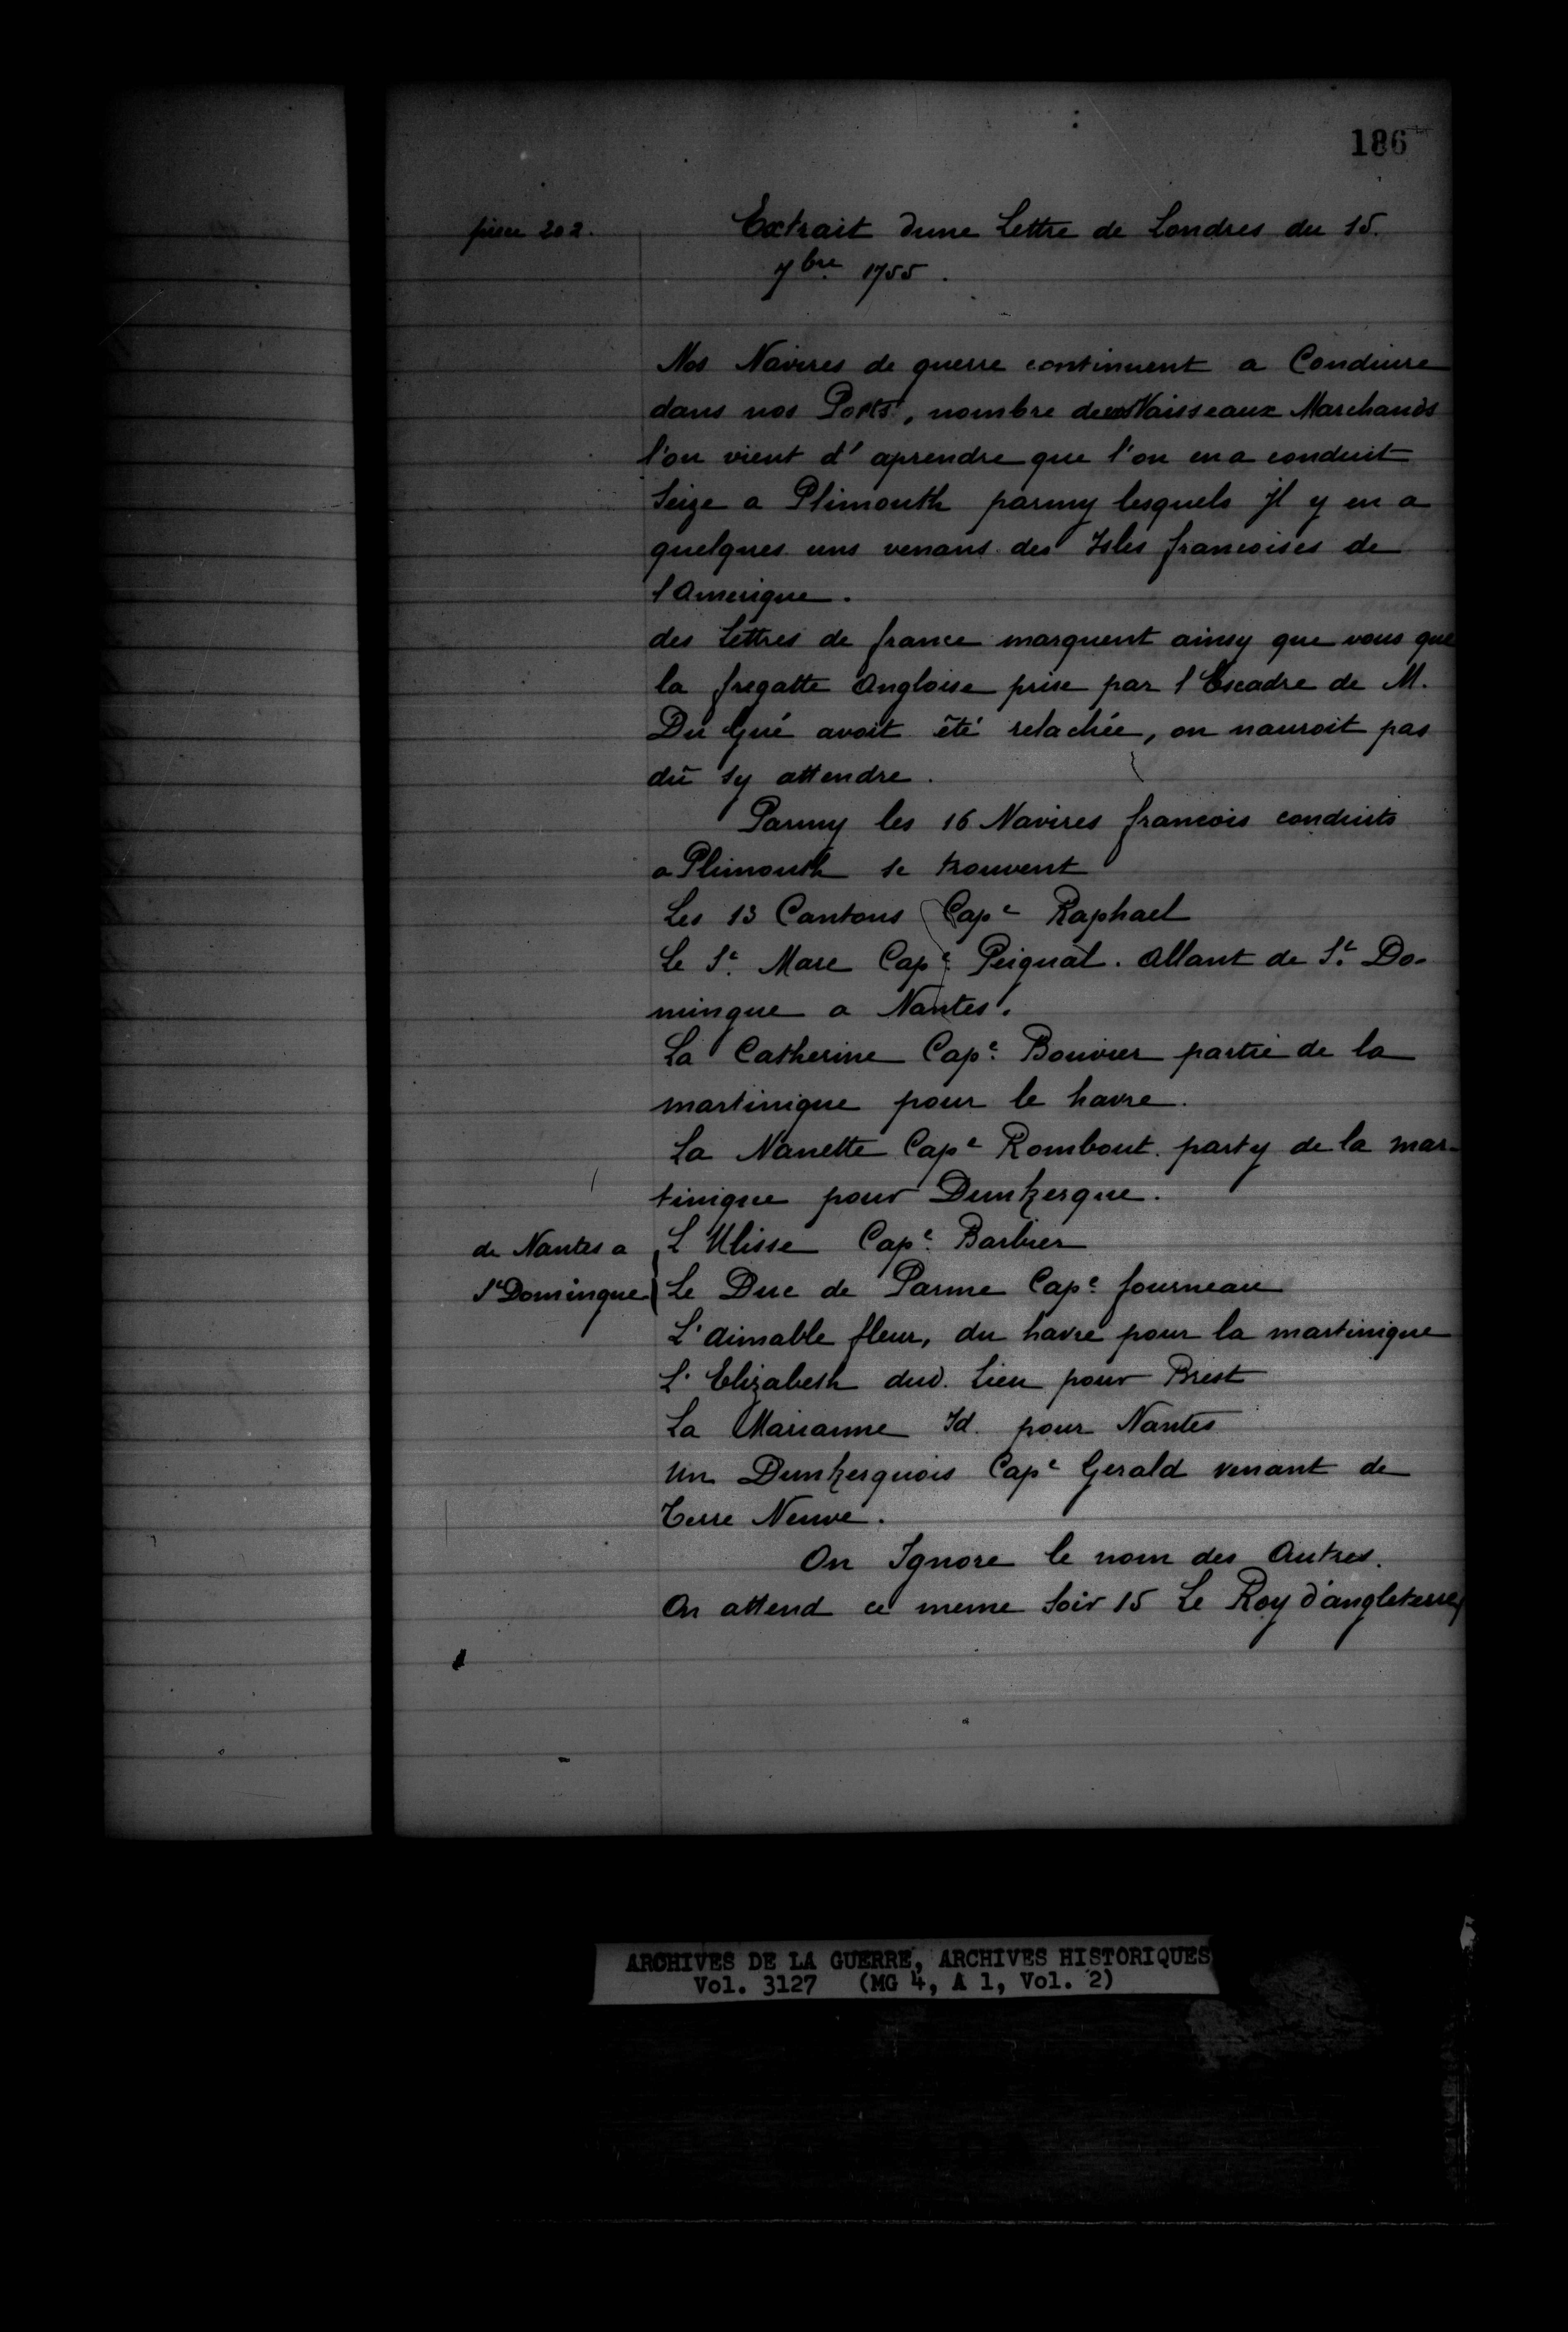 186
piece 202.
Extrait dune Lettre de Londres du 15.
7bre 1755.
Nos Navires de guerre continuent a Conduire
dans nos Ports, nombre de Vaisseaux Marchands
l'on vient d'aprendre que l'on en a conduit
Seize a Plimouth parmy lesquels Jl y en a
quelques uns venans des Isles francoises de
l'Amerique.
des Lettres de france marquent ainsy que vous que
la fregatte Angloise prise par l'Escadre de M.
Du Gué avoit été relachée, on nauroit pas
dû sy attendre.
Parmy les 16 Navires francois conduits
a Plimouth se trouvent
Les 13 Cantons Cape Raphael
Le St. Marc Cape Peignat. Allant de St. Do-
mingue a Nantes.
La Catherine Cape. Bouvier partie de la
martinique pour le havre.
La Nanette Cape Rombout. party de la mar-
tinique pour Dunkerque.
de Nantes a
St Domingue
L'Ulisse Cape. Barbier
Le Duc de Parme Cape. fourneau
L'aimable fleur, du havre pour la martinique
L'Elizabeth dud. Lieu pour Brest
La Marianne Id. pour Nantes
Un Dunkerquois Cape Gerald venant de
Terre Neuve.
On Ignore le nom des Autres.
On attend ce meme Soir 15 Le Roy d'angleterre,
ARCHIVES DE LA GUERRE, ARCHIVES HISTORIQUES
Vol. 3127 (MG 4, A 1, Vol. 2)